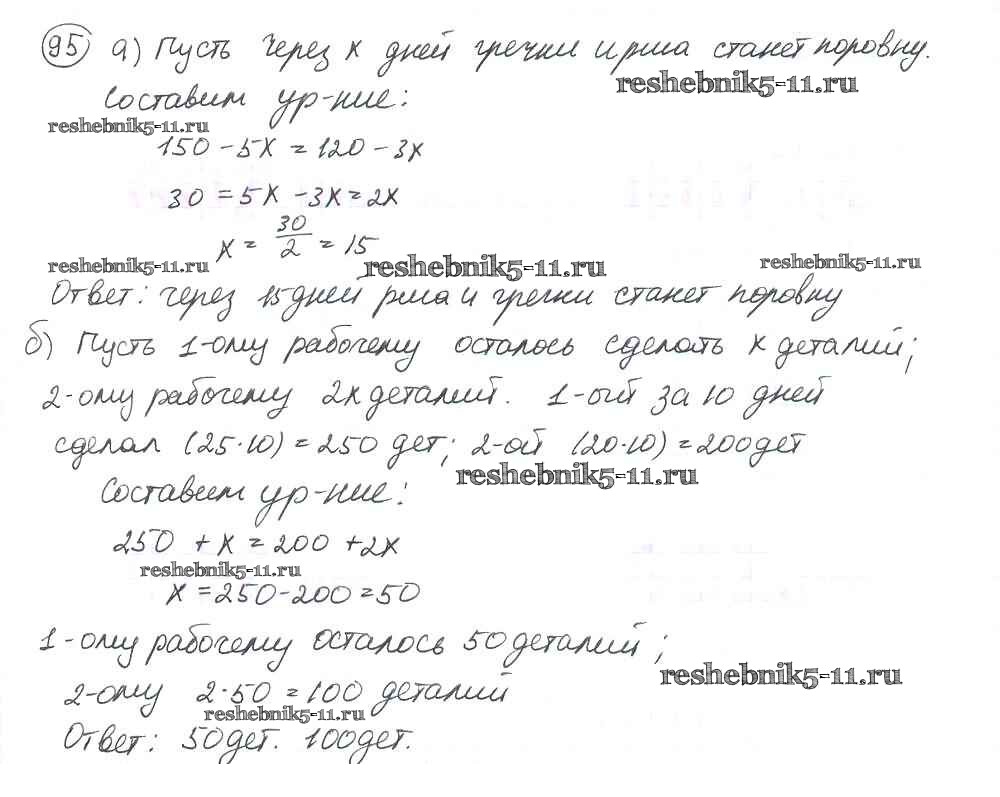 95 а) Пусть через x дней гречки и риса станет поровну.
reshebnik5-11.ru
Составим ур-ние:
reshebnik5-11.ru
150 - 5x = 120 - 3x
30 = 5x - 3x = 2x
x = 30/2 = 15
reshebnik5-11.ru reshebnik5-11.ru reshebnik5-11.ru
Ответ: через 15 дней риса и гречки станет поровну
б) Пусть 1-ому рабочему осталось сделать x деталий;
2-ому рабочему 2x деталий. 1-ый за 10 дней
сделал (25·10) = 250 дет; 2-ой (20·10) = 200 дет
reshebnik5-11.ru
Составим ур-ние:
250 + x = 200 + 2x
reshebnik5-11.ru
x = 250 - 200 = 50
1-ому рабочему осталось 50 деталий;
reshebnik5-11.ru
2-ому 2·50 = 100 деталий
reshebnik5-11.ru
Ответ: 50 дет. 100 дет.